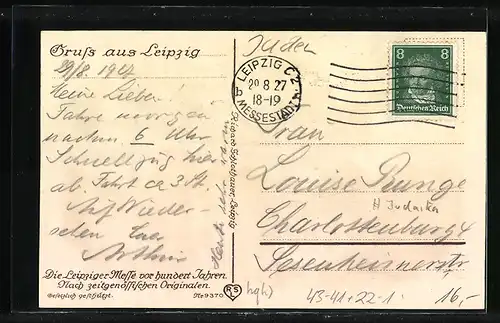 Gruß aus Leipzig
29/8. 1927
Meine Lieben!
Fahre morgen
nachm. 6 Uhr
Schnellzug hier
ab. Fahrt ca 3 St.
Auf Wieder-
sehen Euer
Arthur
Die Leipziger Messe vor hundert Jahren.
Nach zeitgenössischen Originalen.
Gesetzlich geschützt.
Nr. 9370
RS
Juden
LEIPZIG C2
b
29 8 27
18-19
MESSESTADT
8 8
Deutsches Reich
Frau
Louise Runge
# Judaika
Charlottenburg 4
43-41+22-1
16,-